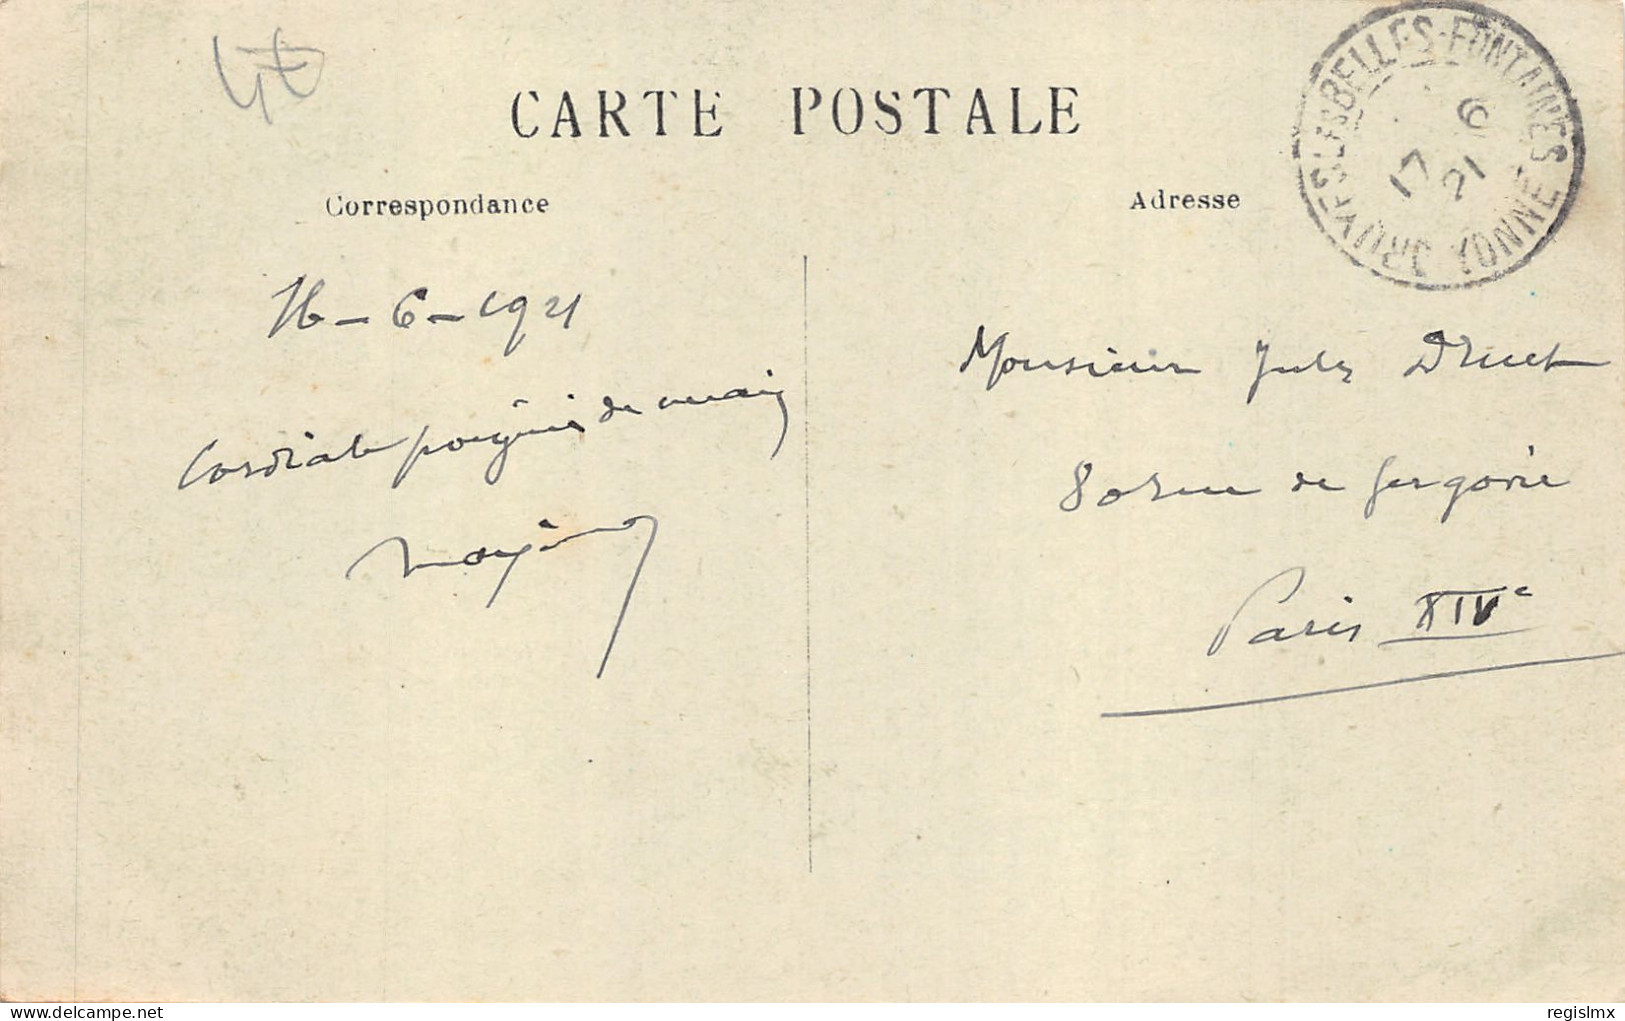 CARTE POSTALE
Correspondance
Adresse
DRUYES-LES-BELLES-FONTAINES
YONNE
17 6
21
16-6-1921
Cordiale poignée de main
Monsieur Jules Druet
80 rue de Gergovie
Paris XIVe
www.delcampe.net
regislmx